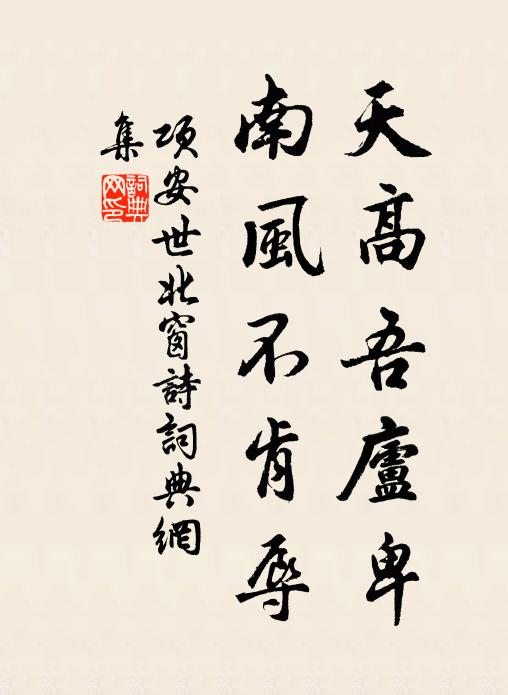 天高吾廬卑
南風不肯辱
項安世北窗詩詞典網
集
詞典網印